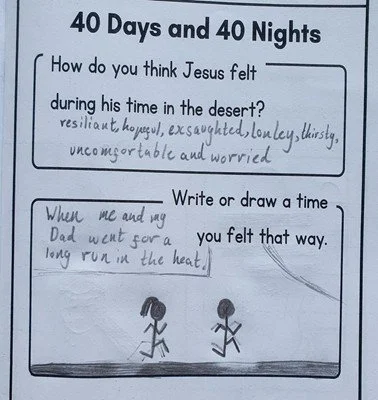 40 Days and 40 Nights
How do you think Jesus felt
during his time in the desert?
resiliant, hopeful, exsaughted, lonley, thirsty,
uncomfortable and worried
Write or draw a time
you felt that way.
When me and my
Dad went for a
long run in the heat.